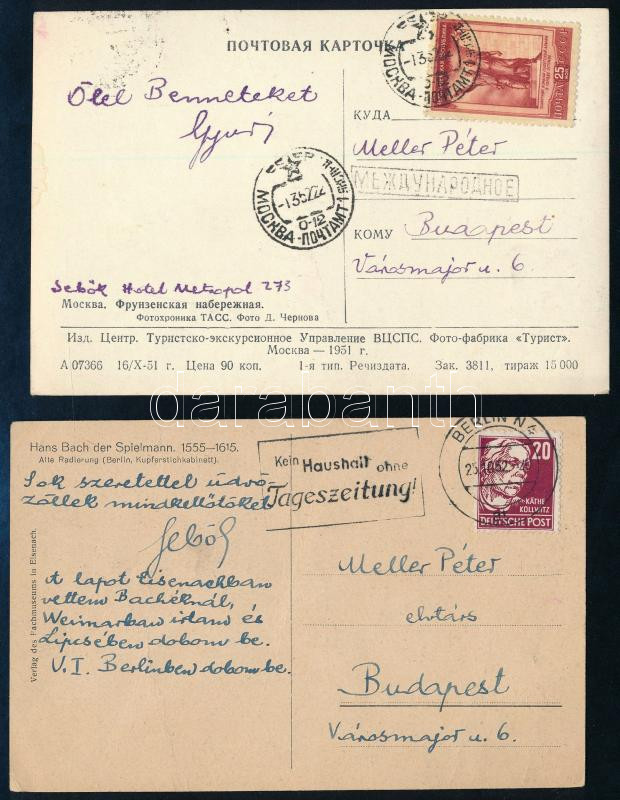 ПОЧТОВАЯ КАРТОЧКА
ПОЧТА 25 СССР
МОСКВА-ПОЧТАМТ 1
Ölel Benneteket
Gyuri
КУДА
Meller Péter
МЕЖДУНАРОДНОЕ
МОСКВА-ПОЧТАМТ 1
0-12
КОМУ Budapest
Városmajor u. 6.
Sebők Hotel Metropol 273
Москва. Фрунзенская набережная.
Фотохроника ТАСС. Фото Д. Чернова
Изд. Центр. Туристско-экскурсионное Управление ВЦСПС. Фото-фабрика «Турист».
Москва — 1951 г.
А 07366 16/X-51 г. Цена 90 коп. 1-я тип. Речиздата. Зак. 3811, тираж 15 000
darabanth
Hans Bach der Spielmann. 1555—1615.
Alte Radierung (Berlin, Kupferstichkabinett).
Kein Haushalt ohne
Tageszeitung!
BERLIN N 4
20
KÄTHE
KOLLWITZ
DEUTSCHE POST
Sok szeretettel üdvö-
zöllek mindkettőtöket
Sebők
A lapot Eisenachban
vettem Bachéknál,
Weimarban írtam és
Lipcsében dobom be.
V.I. Berlinben dobom be.
Verlag des Fachmuseums in Eisenach.
Meller Péter
elvtárs
Budapest
Városmajor u. 6.